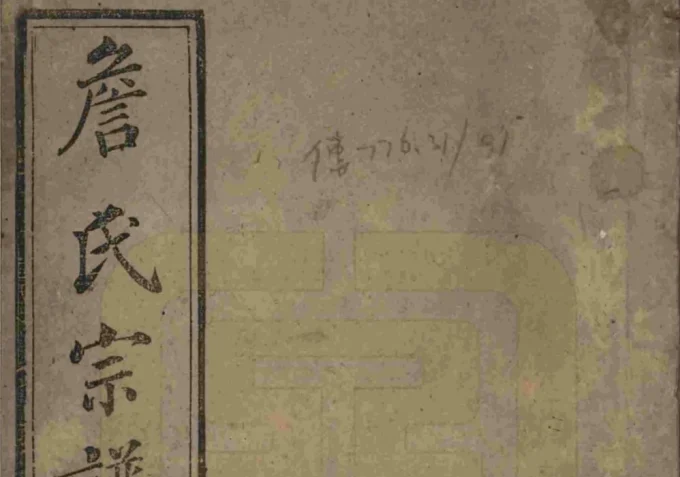 詹氏宗譜
傳776.21/91